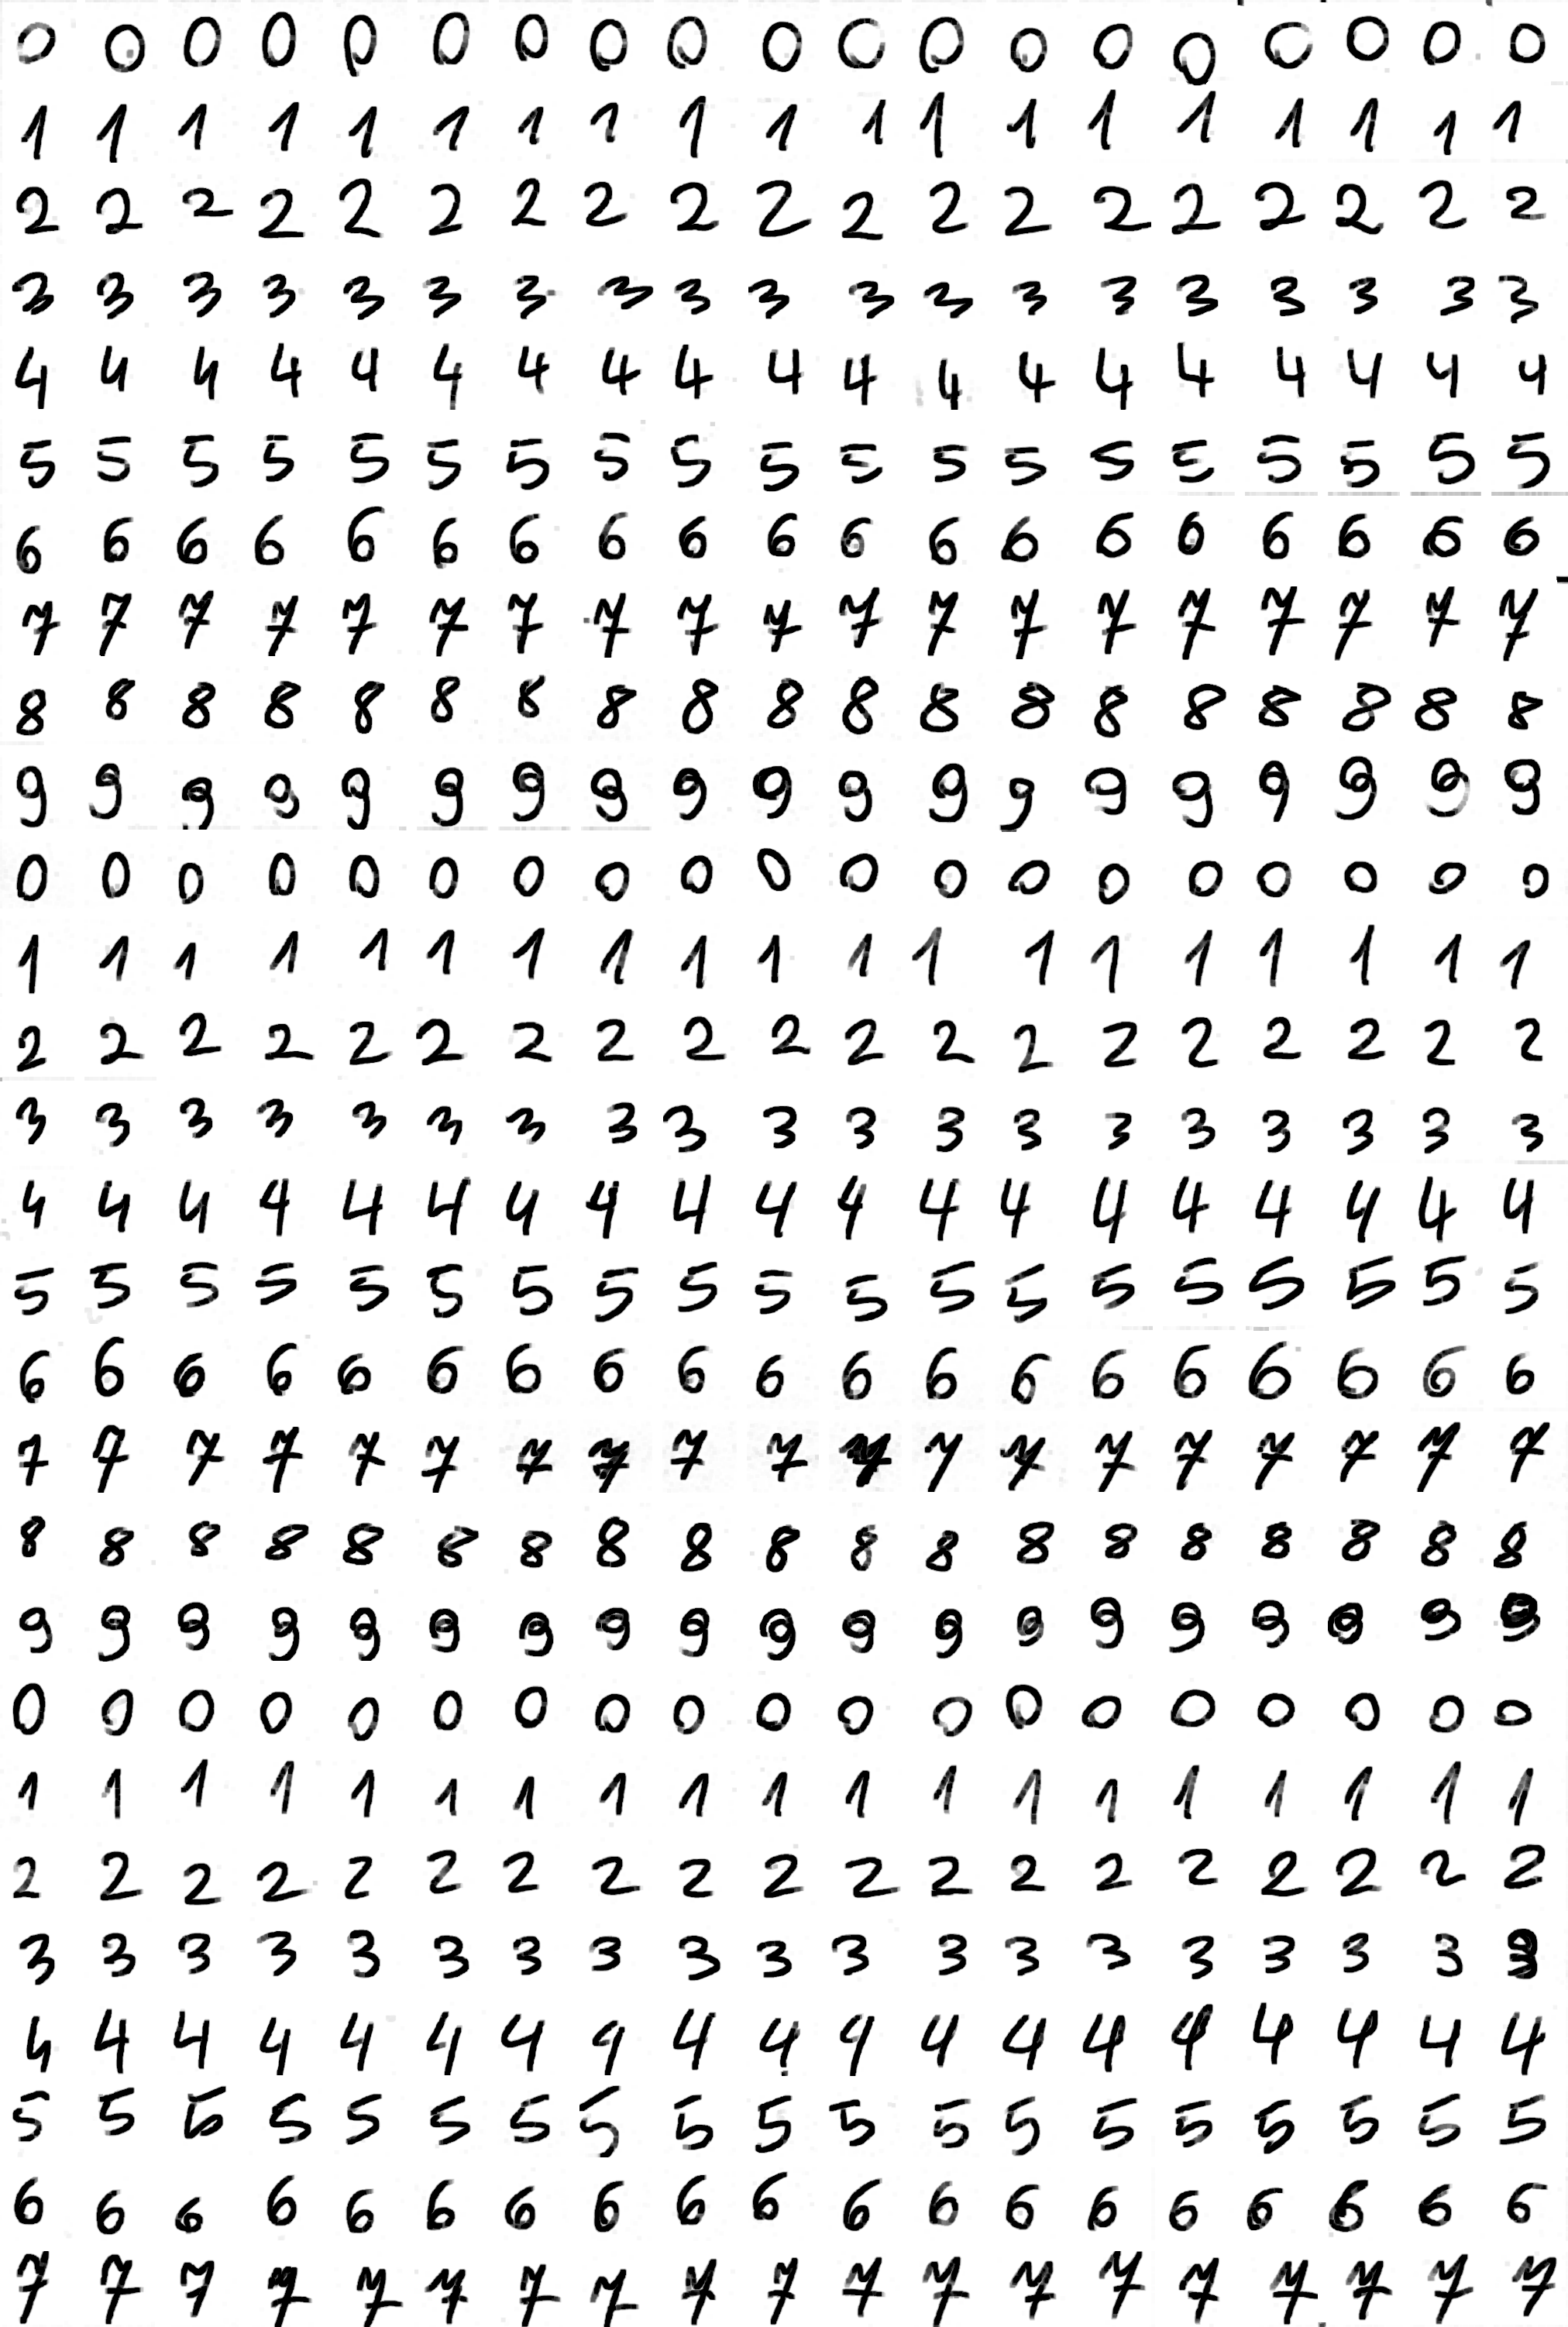 0 0 0 0 0 0 0 0 0 0 0 0 0 0 0 0 0 0 0
1 1 1 1 1 1 1 1 1 1 1 1 1 1 1 1 1 1 1
2 2 2 2 2 2 2 2 2 2 2 2 2 2 2 2 2 2 2
3 3 3 3 3 3 3 3 3 3 3 3 3 3 3 3 3 3 3
4 4 4 4 4 4 4 4 4 4 4 4 4 4 4 4 4 4 4
5 5 5 5 5 5 5 5 5 5 5 5 5 5 5 5 5 5 5
6 6 6 6 6 6 6 6 6 6 6 6 6 6 6 6 6 6 6
7 7 7 7 7 7 7 7 7 7 7 7 7 7 7 7 7 7 7
8 8 8 8 8 8 8 8 8 8 8 8 8 8 8 8 8 8 8
9 9 9 9 9 9 9 9 9 9 9 9 9 9 9 9 9 9 9
0 0 0 0 0 0 0 0 0 0 0 0 0 0 0 0 0 0 0
1 1 1 1 1 1 1 1 1 1 1 1 1 1 1 1 1 1 1
2 2 2 2 2 2 2 2 2 2 2 2 2 2 2 2 2 2 2
3 3 3 3 3 3 3 3 3 3 3 3 3 3 3 3 3 3 3
4 4 4 4 4 4 4 4 4 4 4 4 4 4 4 4 4 4 4
5 5 5 5 5 5 5 5 5 5 5 5 5 5 5 5 5 5 5
6 6 6 6 6 6 6 6 6 6 6 6 6 6 6 6 6 6 6
7 7 7 7 7 7 7 7 7 7 7 7 7 7 7 7 7 7 7
8 8 8 8 8 8 8 8 8 8 8 8 8 8 8 8 8 8 8
9 9 9 9 9 9 9 9 9 9 9 9 9 9 9 9 9 9 9
0 0 0 0 0 0 0 0 0 0 0 0 0 0 0 0 0 0 0
1 1 1 1 1 1 1 1 1 1 1 1 1 1 1 1 1 1 1
2 2 2 2 2 2 2 2 2 2 2 2 2 2 2 2 2 2 2
3 3 3 3 3 3 3 3 3 3 3 3 3 3 3 3 3 3 3
4 4 4 4 4 4 4 4 4 4 4 4 4 4 4 4 4 4 4
5 5 5 5 5 5 5 5 5 5 5 5 5 5 5 5 5 5 5
6 6 6 6 6 6 6 6 6 6 6 6 6 6 6 6 6 6 6
7 7 7 7 7 7 7 7 7 7 7 7 7 7 7 7 7 7 7